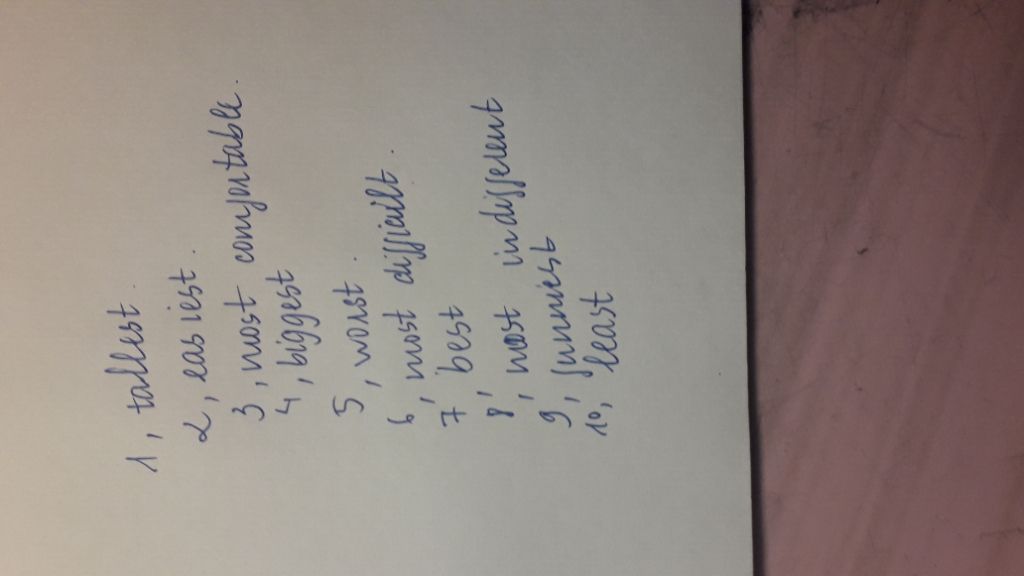 1, tallest.
2, easiest.
3, most comfortable.
4, biggest
5, worst.
6, most difficult.
7, best
8, most indifferent
9, funniest
10, least